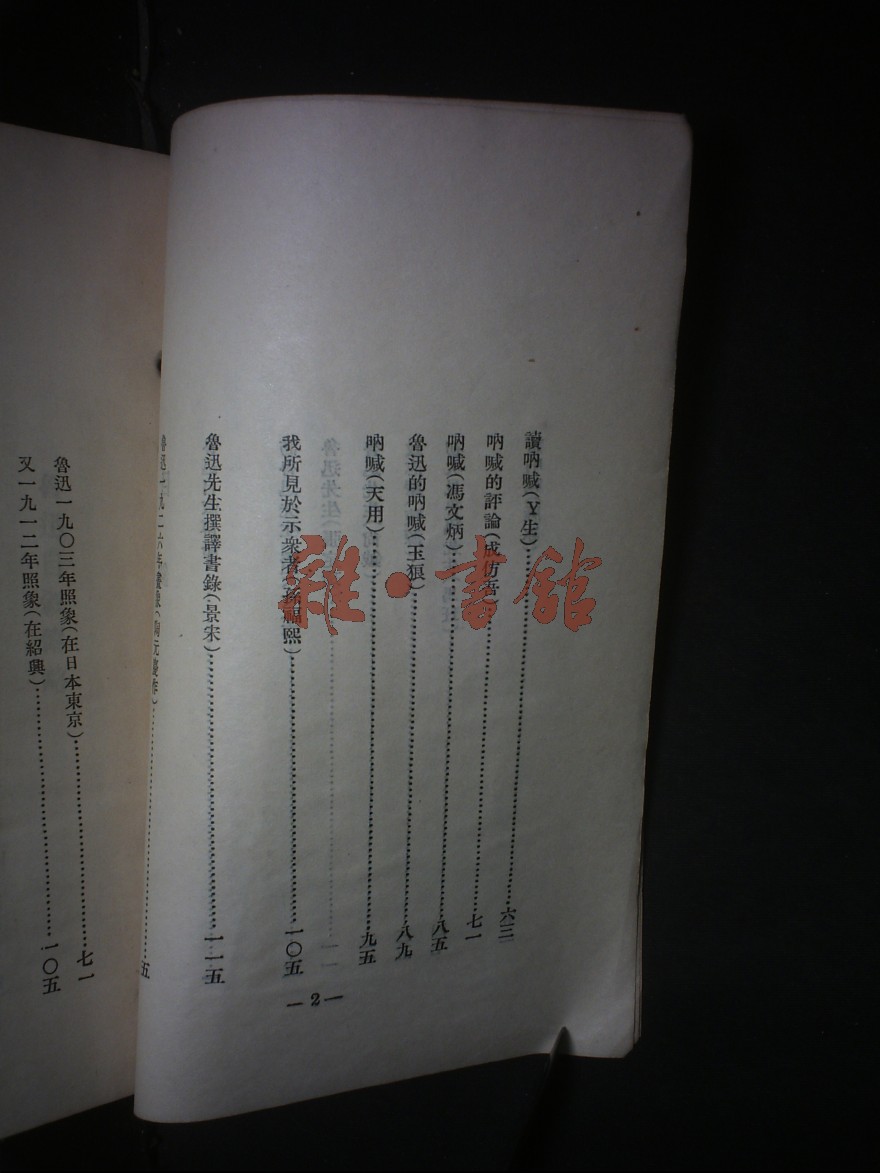 讀吶喊(Y生)……六三
吶喊的評論(成仿吾)……七一
吶喊(馮文炳)……八五
魯迅的吶喊(玉狼)……八九
吶喊(天用)……九五
我所見於示衆者(孫福熙)……一〇五
魯迅先生撰譯書錄(景宋)……一一五
— 2 —
魯迅一九二六年畫象(陶元慶作)……五
魯迅一九〇三年照象(在日本東京)……七一
又一九一二年照象(在紹興)……一〇五
雜·書館